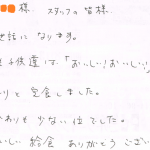 様 スタッフの皆様
世話になります。
子供達は「おいしい!おいしい!」
りと完食しました。
かわりも少ない位でした。
いしい給食 ありがとうござい